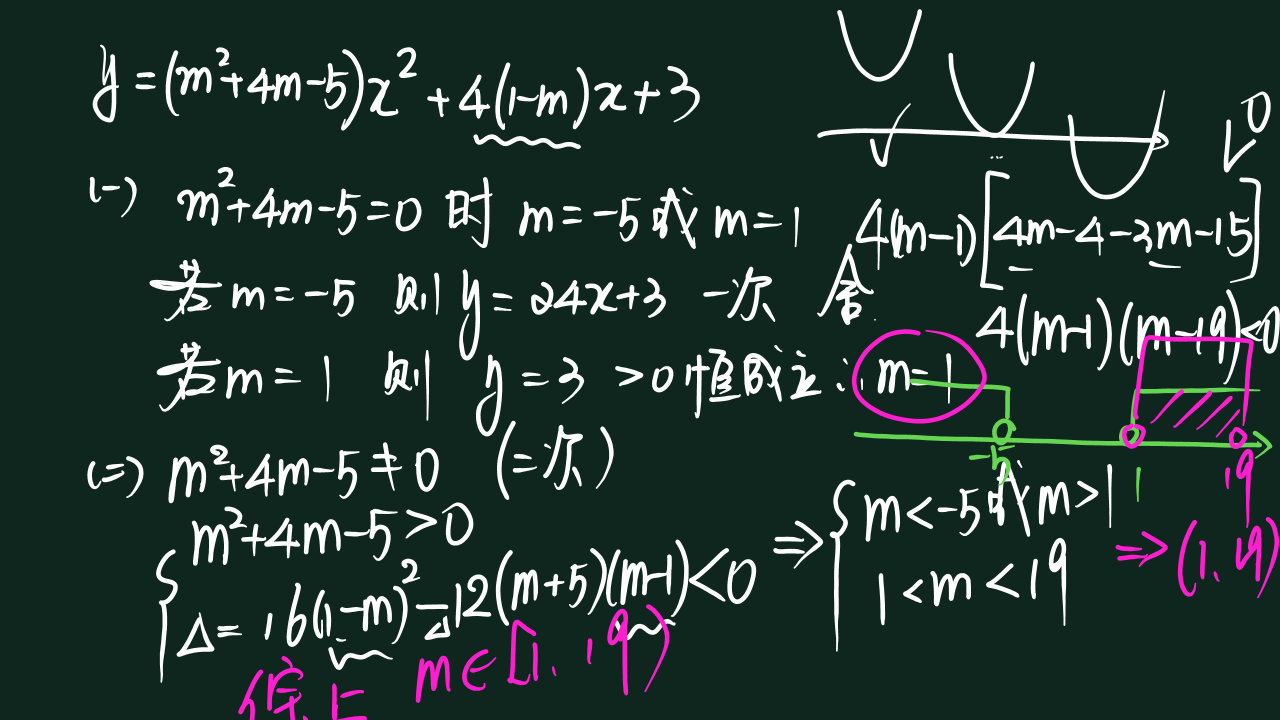 y=(m²+4m-5)x²+4(1-m)x+3
(一) m²+4m-5=0 时 m=-5或m=1
若m=-5 则 y=24x+3 一次 舍
若m=1 则 y=3 >0恒成立 ∴ m=1
(二) m²+4m-5≠0 (二次)
m²+4m-5>0
Δ=16(1-m)²-12(m+5)(m-1)<0
⇒ m<-5或m>1
1<m<19
⇒(1,19)
综上 m∈[1,19)
0
4(m-1)[4m-4-3m-15]
4(m-1)(m-19)<0
-5 1 19